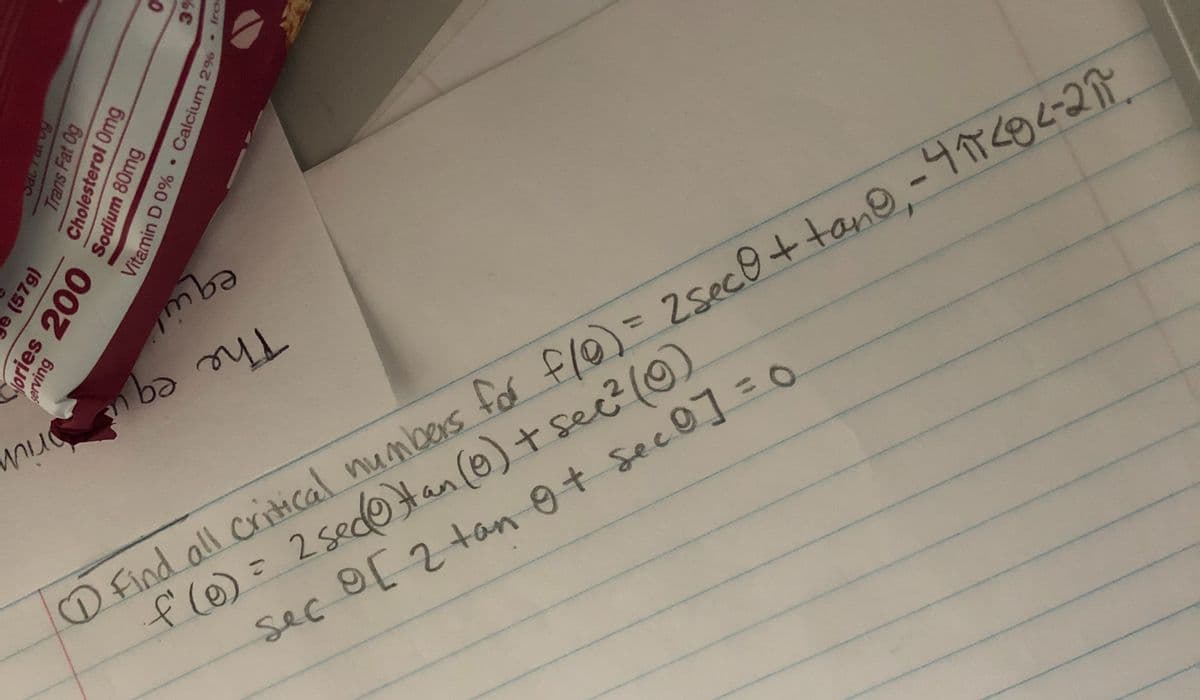 (57g)
ories 200
erving
Trans Fat 0g
Cholesterol 0mg
Sodium 80mg
Vitamin D 0% • Calcium 2% •
3%
The eq
① Find all critical numbers for f(θ) = 2secθ + tanθ, -4π<θ<-2π.
f'(θ) = 2sec(θ)tan(θ) + sec²(θ)
sec θ[2 tan θ + sec θ] = 0